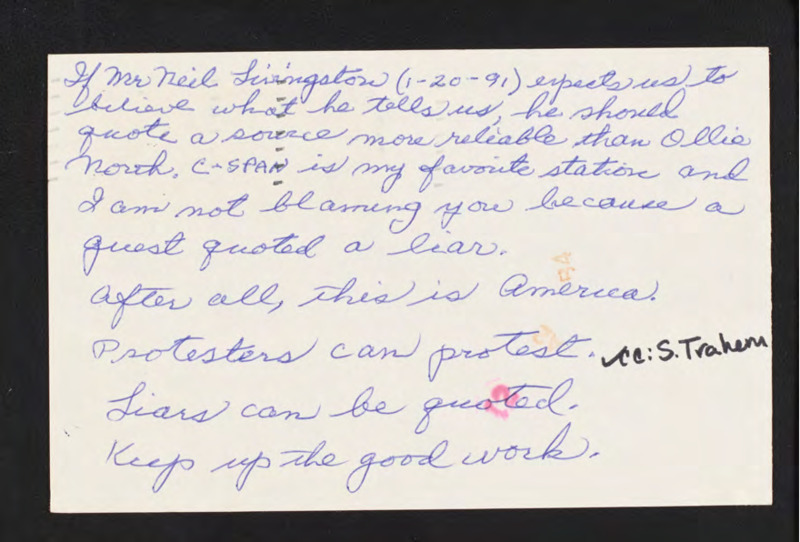 If Mr Neil Livingston (1-20-91) expects us to
believe what he tells us, he should
quote a source more reliable than Ollie
North. C-SPAN is my favorite station and
I am not blaming you because a
guest quoted a liar.
After all, this is America.
Protesters can protest.
cc: S. Trahern
Liars can be quoted.
Keep up the good work.